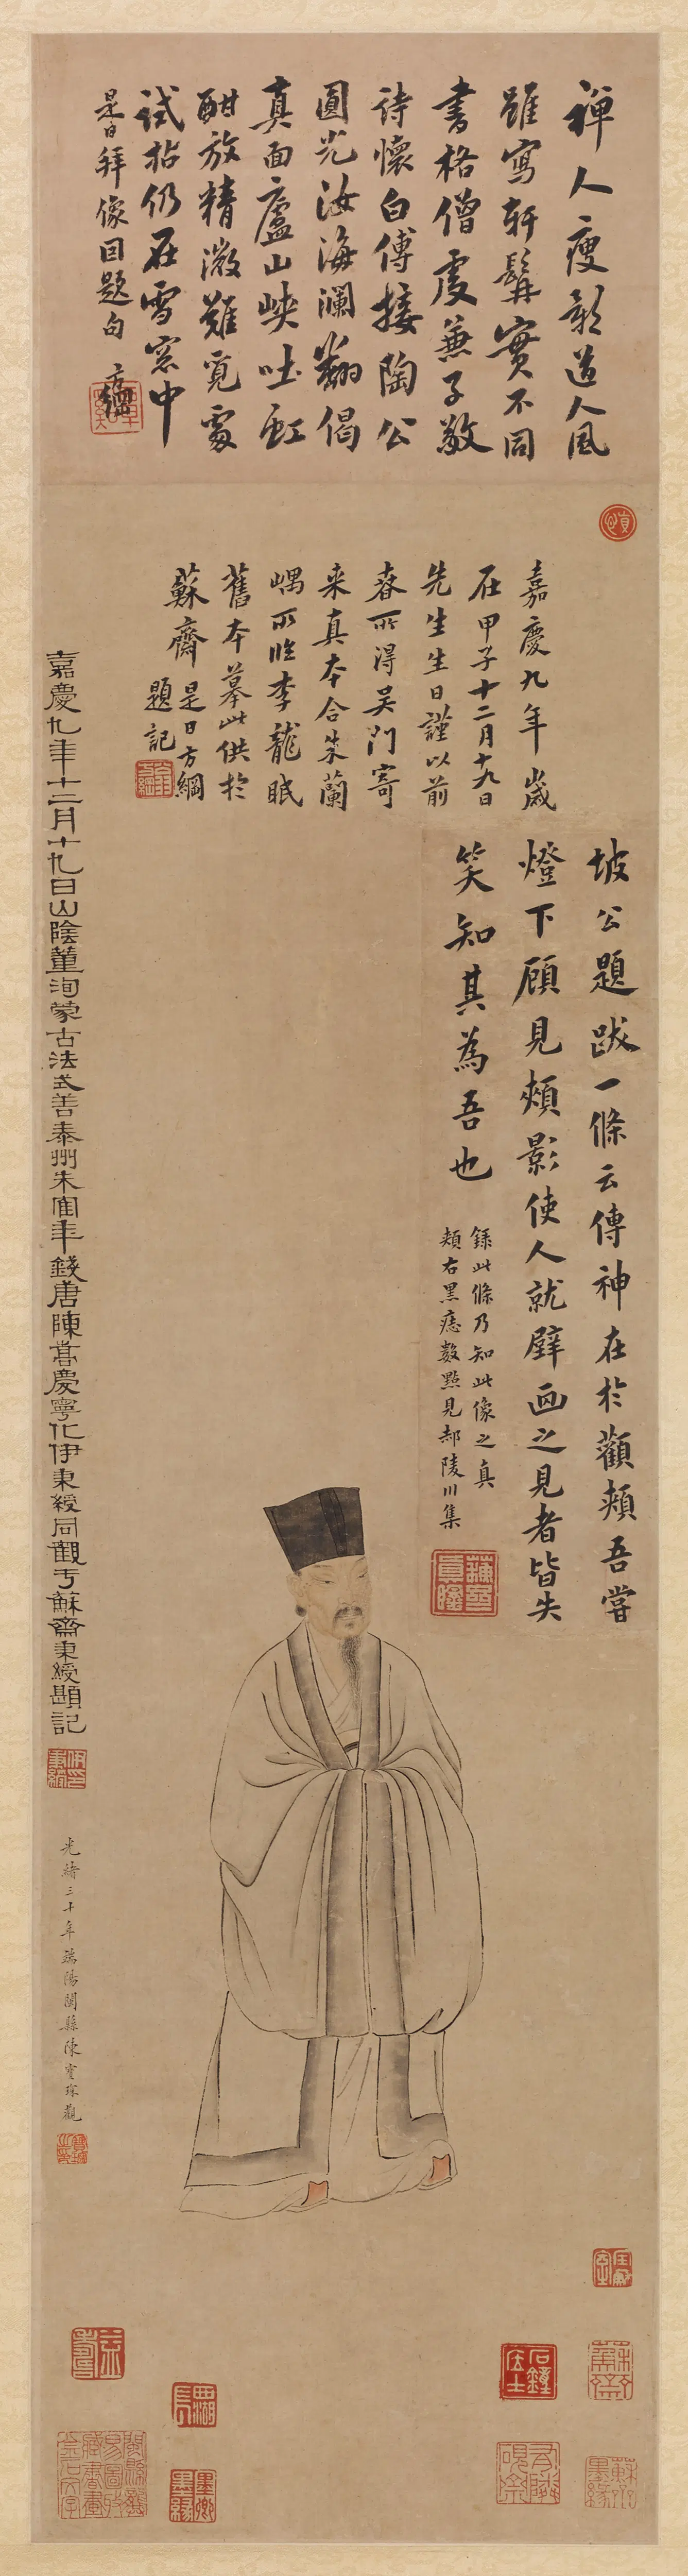 禅人瘦影道人風
雖寫軒髯實不同
書格僧虔兼子敬
詩懷白傅接陶公
圓光汝海瀾翻偈
真面廬山峽吐虹
酣放精微難覓處
試拈仍在雪窓中
是日拜像因題句 方綱
嘉慶九年歲
在甲子十二月十九日
先生生日謹以前
春所得吴門寄
来真本合朱蘭
嵎所臨李龍眠
舊本摹此供於
蘇齋 是日方綱
題記
坡公題跋一條云傳神在於顴頰吾嘗
燈下顧見頰影使人就壁画之見者皆失
笑知其為吾也
録此條乃知此像之真
頰右黑痣數點見郝陵川集
嘉慶九年十二月十九日山陰董洵蒙古法式善泰州朱寉年錢唐陳嵩慶寧化伊秉綬同觀于蘇齋秉綬題記
光緒三十年端陽閩縣陳寶琛觀